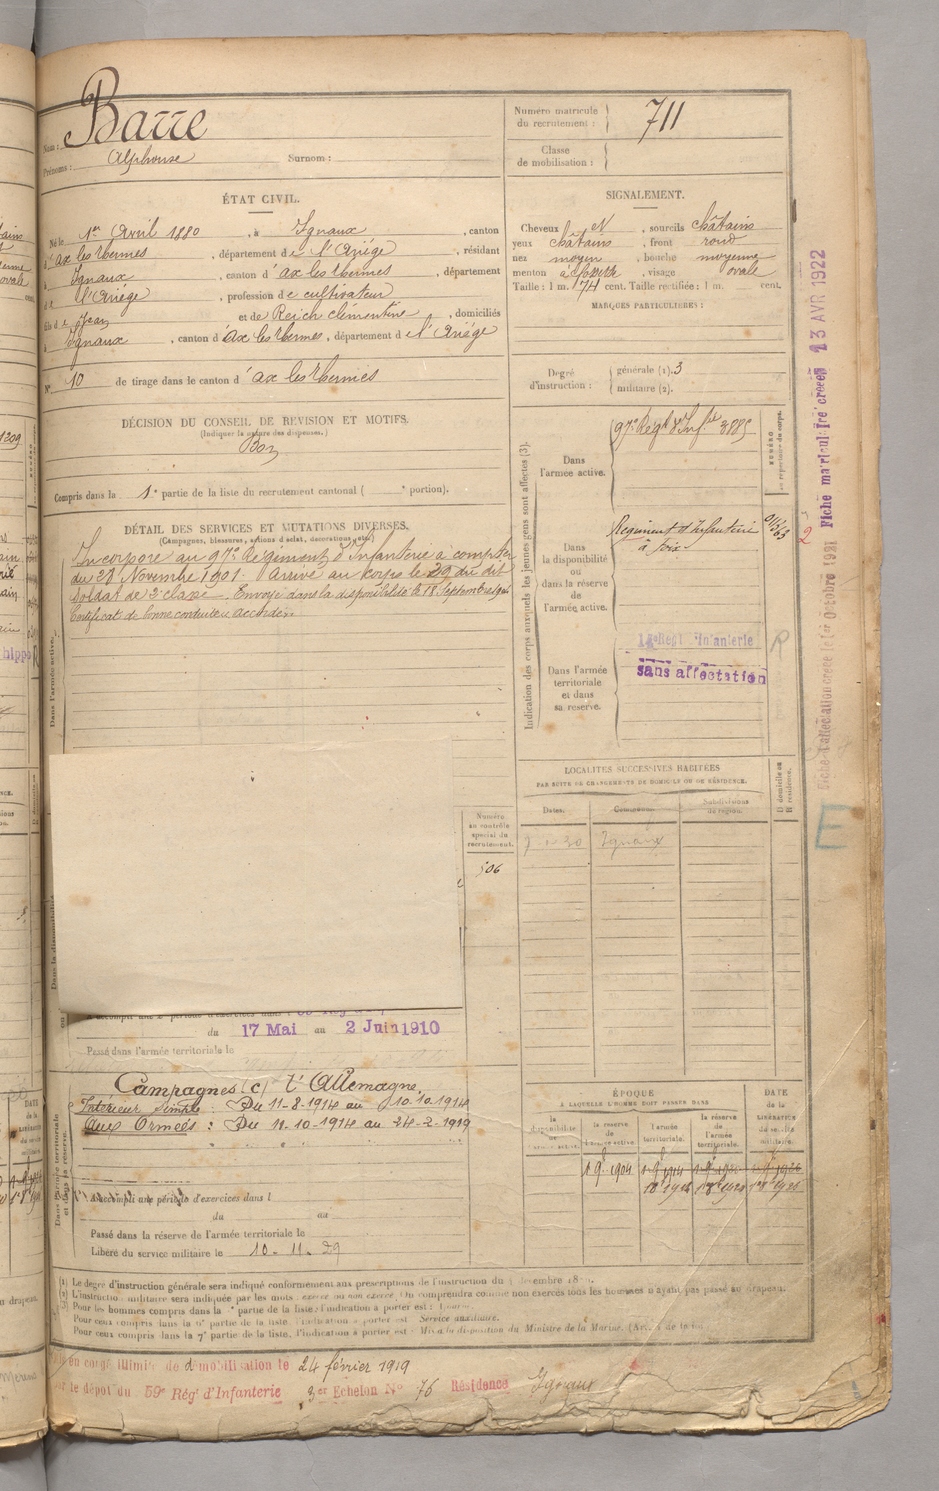 Nom : Barre
Prénoms : Alphonse Surnom :
Numéro matricule du recrutement : 711
Classe de mobilisation :
ÉTAT CIVIL.
Né le 1er Avril 1880, à Ignaux, canton
d'ax les thermes, département de l'Ariége, résidant
à Ignaux, canton d'ax les thermes, département
de l'Ariége, profession de cultivateur
fils de Jean et de Reich clémentine, domiciliés
à Ignaux, canton d'ax les thermes, département de l'Ariége
N° 10 de tirage dans le canton d'ax les thermes
SIGNALEMENT.
Cheveux N, sourcils châtains
yeux châtains, front rond
nez moyen, bouche moyenne
menton à fossette, visage ovale
Taille : 1 m. 74 cent. Taille rectifiée : 1 m. cent.
MARQUES PARTICULIÈRES :
Degré d'instruction : générale (1). 3
militaire (2).
DÉCISION DU CONSEIL DE REVISION ET MOTIFS.
(Indiquer la nature des dispenses.)
Bon
Compris dans la 1e partie de la liste du recrutement cantonal ( e portion).
DÉTAIL DES SERVICES ET MUTATIONS DIVERSES.
(Campagnes, blessures, actions d'éclat, décorations, etc.)
Incorporé au 97e Régiment d'Infanterie à compter
du 28 Novembre 1901. Arrivé au corps le 29 du dit
Soldat de 2e classe. Envoyé dans la disponibilité le 18 Septembre
Certificat de bonne conduite accordé.
Indication des corps auxquels les jeunes gens sont affectés (3).
Dans l'armée active.
97e Régt d'Infie 3885
NUMÉRO au répertoire du corps.
Dans la disponibilité ou dans la réserve de l'armée active.
Régiment d'Infanterie
à Foix
Dans l'armée territoriale et dans sa réserve.
Régt Infanterie
sans affectation
R
LOCALITÉS SUCCESSIVES HABITÉES
PAR SUITE DE CHANGEMENTS DE DOMICILE OU DE RÉSIDENCE.
Dates. Communes. Subdivisions de région. D domicile ou R résidence.
Ignaux
Numéro au contrôle spécial du recrutement.
506
Dans l'armée active.
du 17 Mai au 2 Juin 1910
Passé dans l'armée territoriale le
Campagnes (c) l'Allemagne
Intérieur simple : Du 11-8-1914 au 10-10-1914
Aux Armées : Du 11-10-1914 au 24-2-1919
A accompli une période d'exercices dans l
du au
Passé dans la réserve de l'armée territoriale le
Libéré du service militaire le 10-11-29
Dans l'armée territoriale et dans sa réserve.
ÉPOQUE
A LAQUELLE L'HOMME DOIT PASSER DANS
la disponibilité de l'armée active. la réserve de l'armée active. l'armée territoriale. la réserve de l'armée territoriale.
DATE de la LIBÉRATION du service militaire.
(1) Le degré d'instruction générale sera indiqué conformément aux prescriptions de l'instruction du
(2) L'instruction militaire sera indiquée par les mots : exercé ou non exercé. On comprendra comme non exercés tous les hommes n'ayant pas passé au drapeau.
(3) Pour les hommes compris dans la partie de la liste, l'indication à porter est :
Pour ceux compris dans la 6e partie de la liste, l'indication à porter est : Service auxiliaire.
Pour ceux compris dans la 7e partie de la liste, l'indication à porter est : Mis à la disposition du Ministre de la Marine.
en congé illimité de démobilisation le 24 février 1919
par le dépôt du 59e Régt d'Infanterie 3er Echelon N° 76 Résidence Ignaux
Fiche d'affectation créée le 1er Octobre 1921
Fiche matriculaire créée 13 AVR 1922
2
E